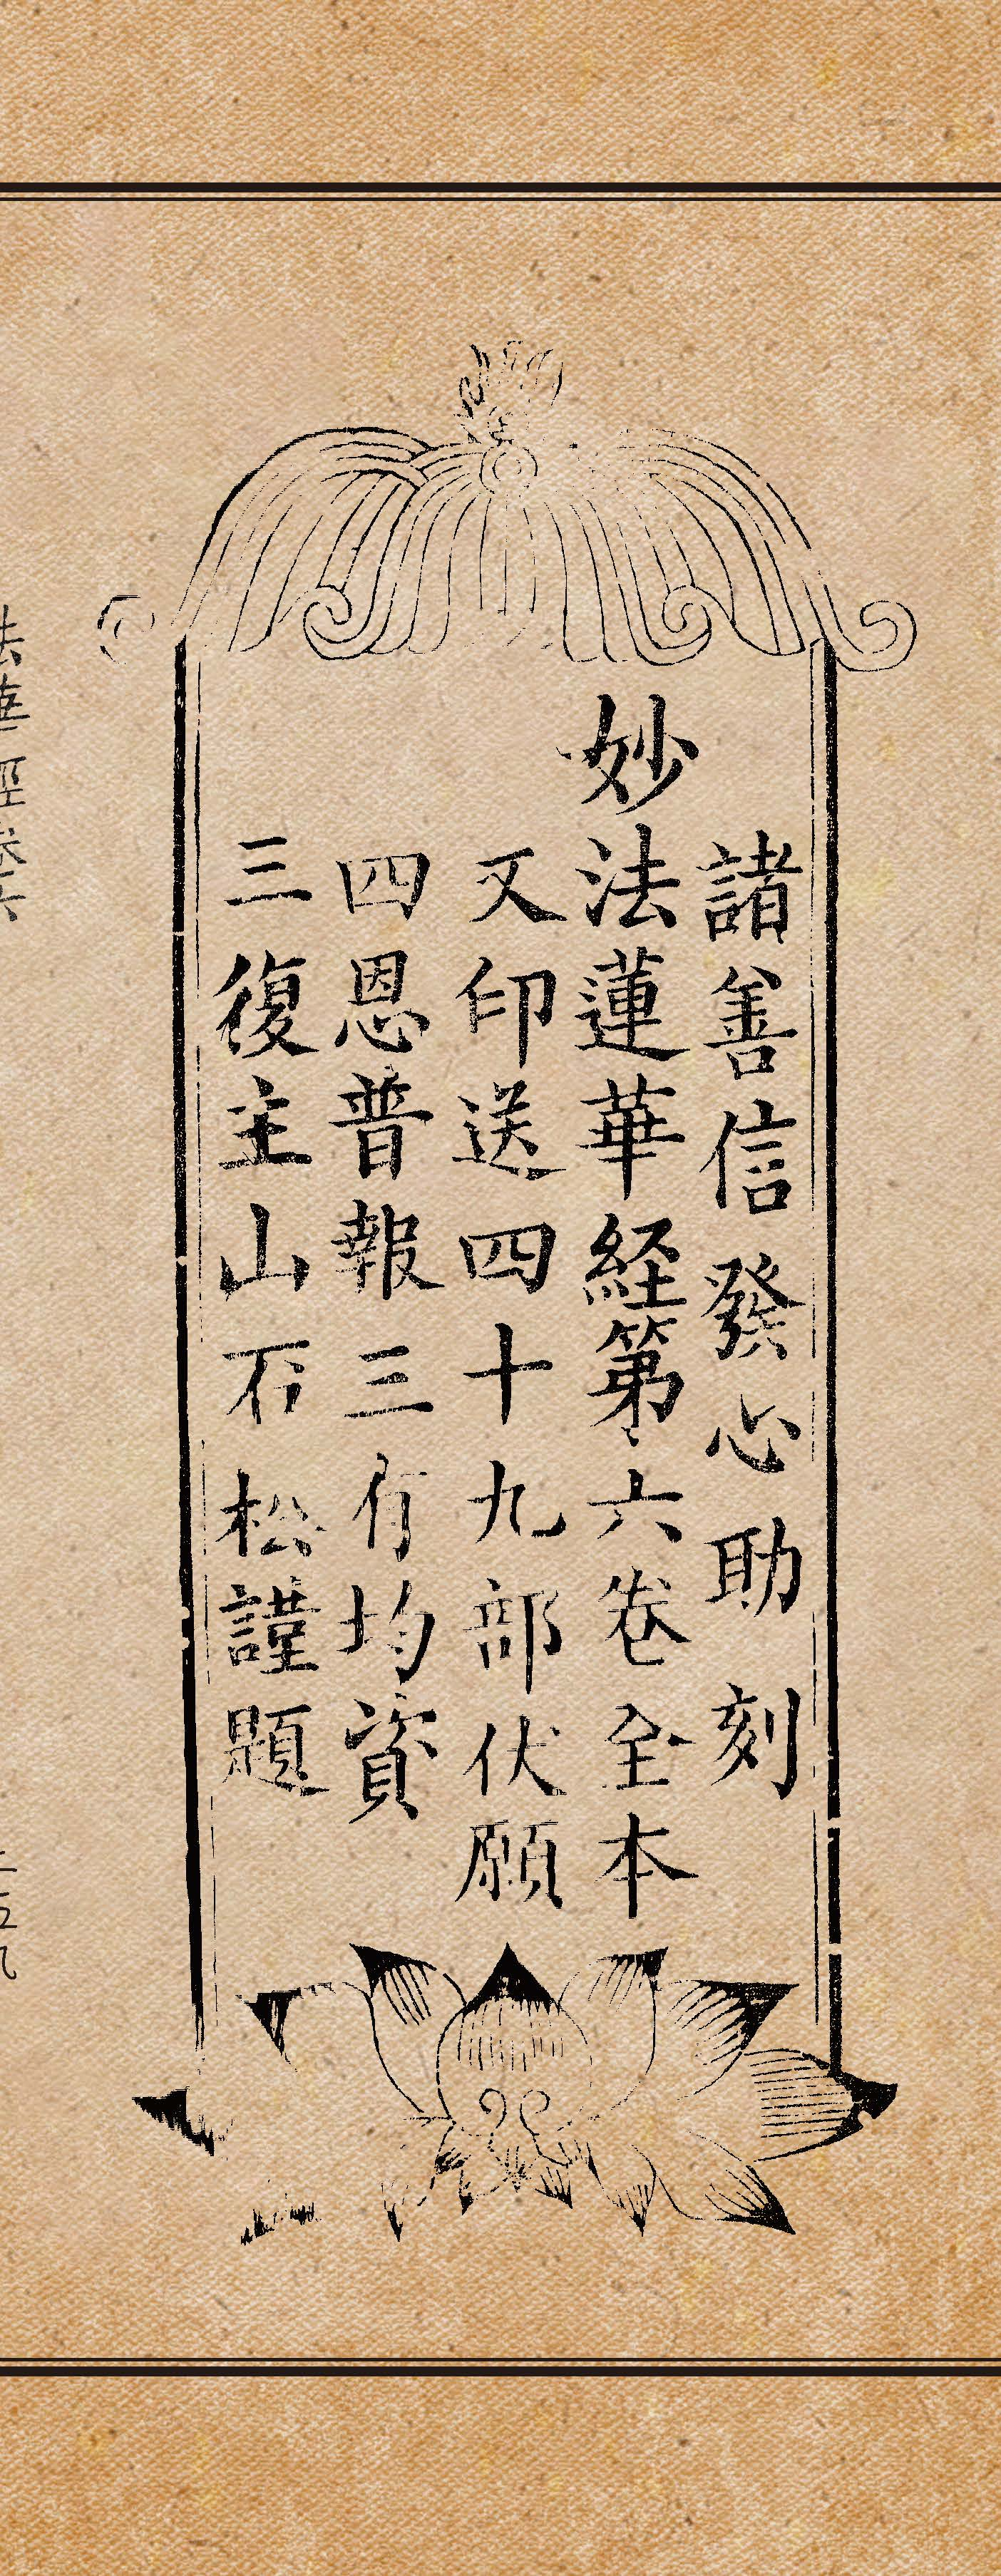 諸善信發心助刻
妙法蓮華経第六卷全本
又印送四十九部伏願
四恩普報三有均資
三復主山石松謹題
法華經卷六
二五九